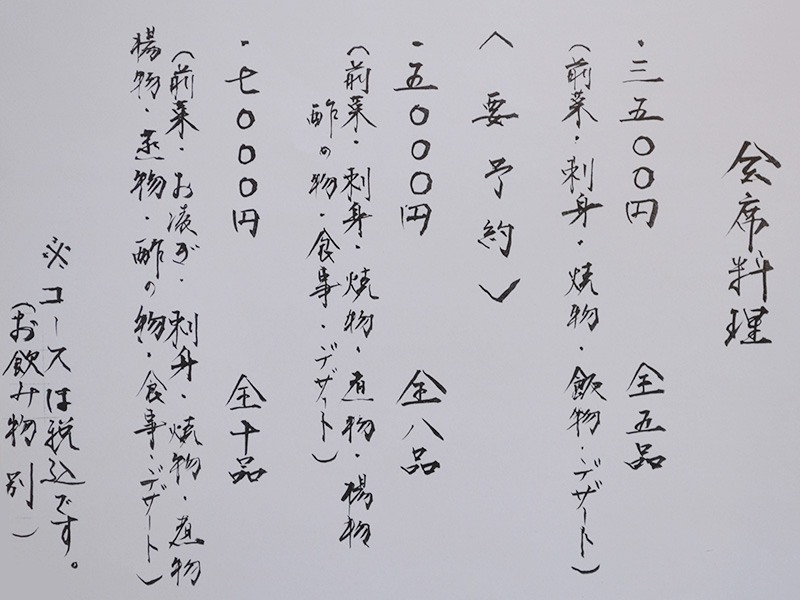 会席料理
・三五〇〇円 全五品
(前菜・刺身・焼物・飯物・デザート)
〈要予約〉
・五〇〇〇円 全八品
(前菜・刺身・焼物・煮物・揚物
酢の物・食事・デザート)
・七〇〇〇円 全十品
(前菜・お凌ぎ・刺身・焼物・煮物
揚物・蒸物・酢の物・食事・デザート)
※コースは税込です。
(お飲み物別)